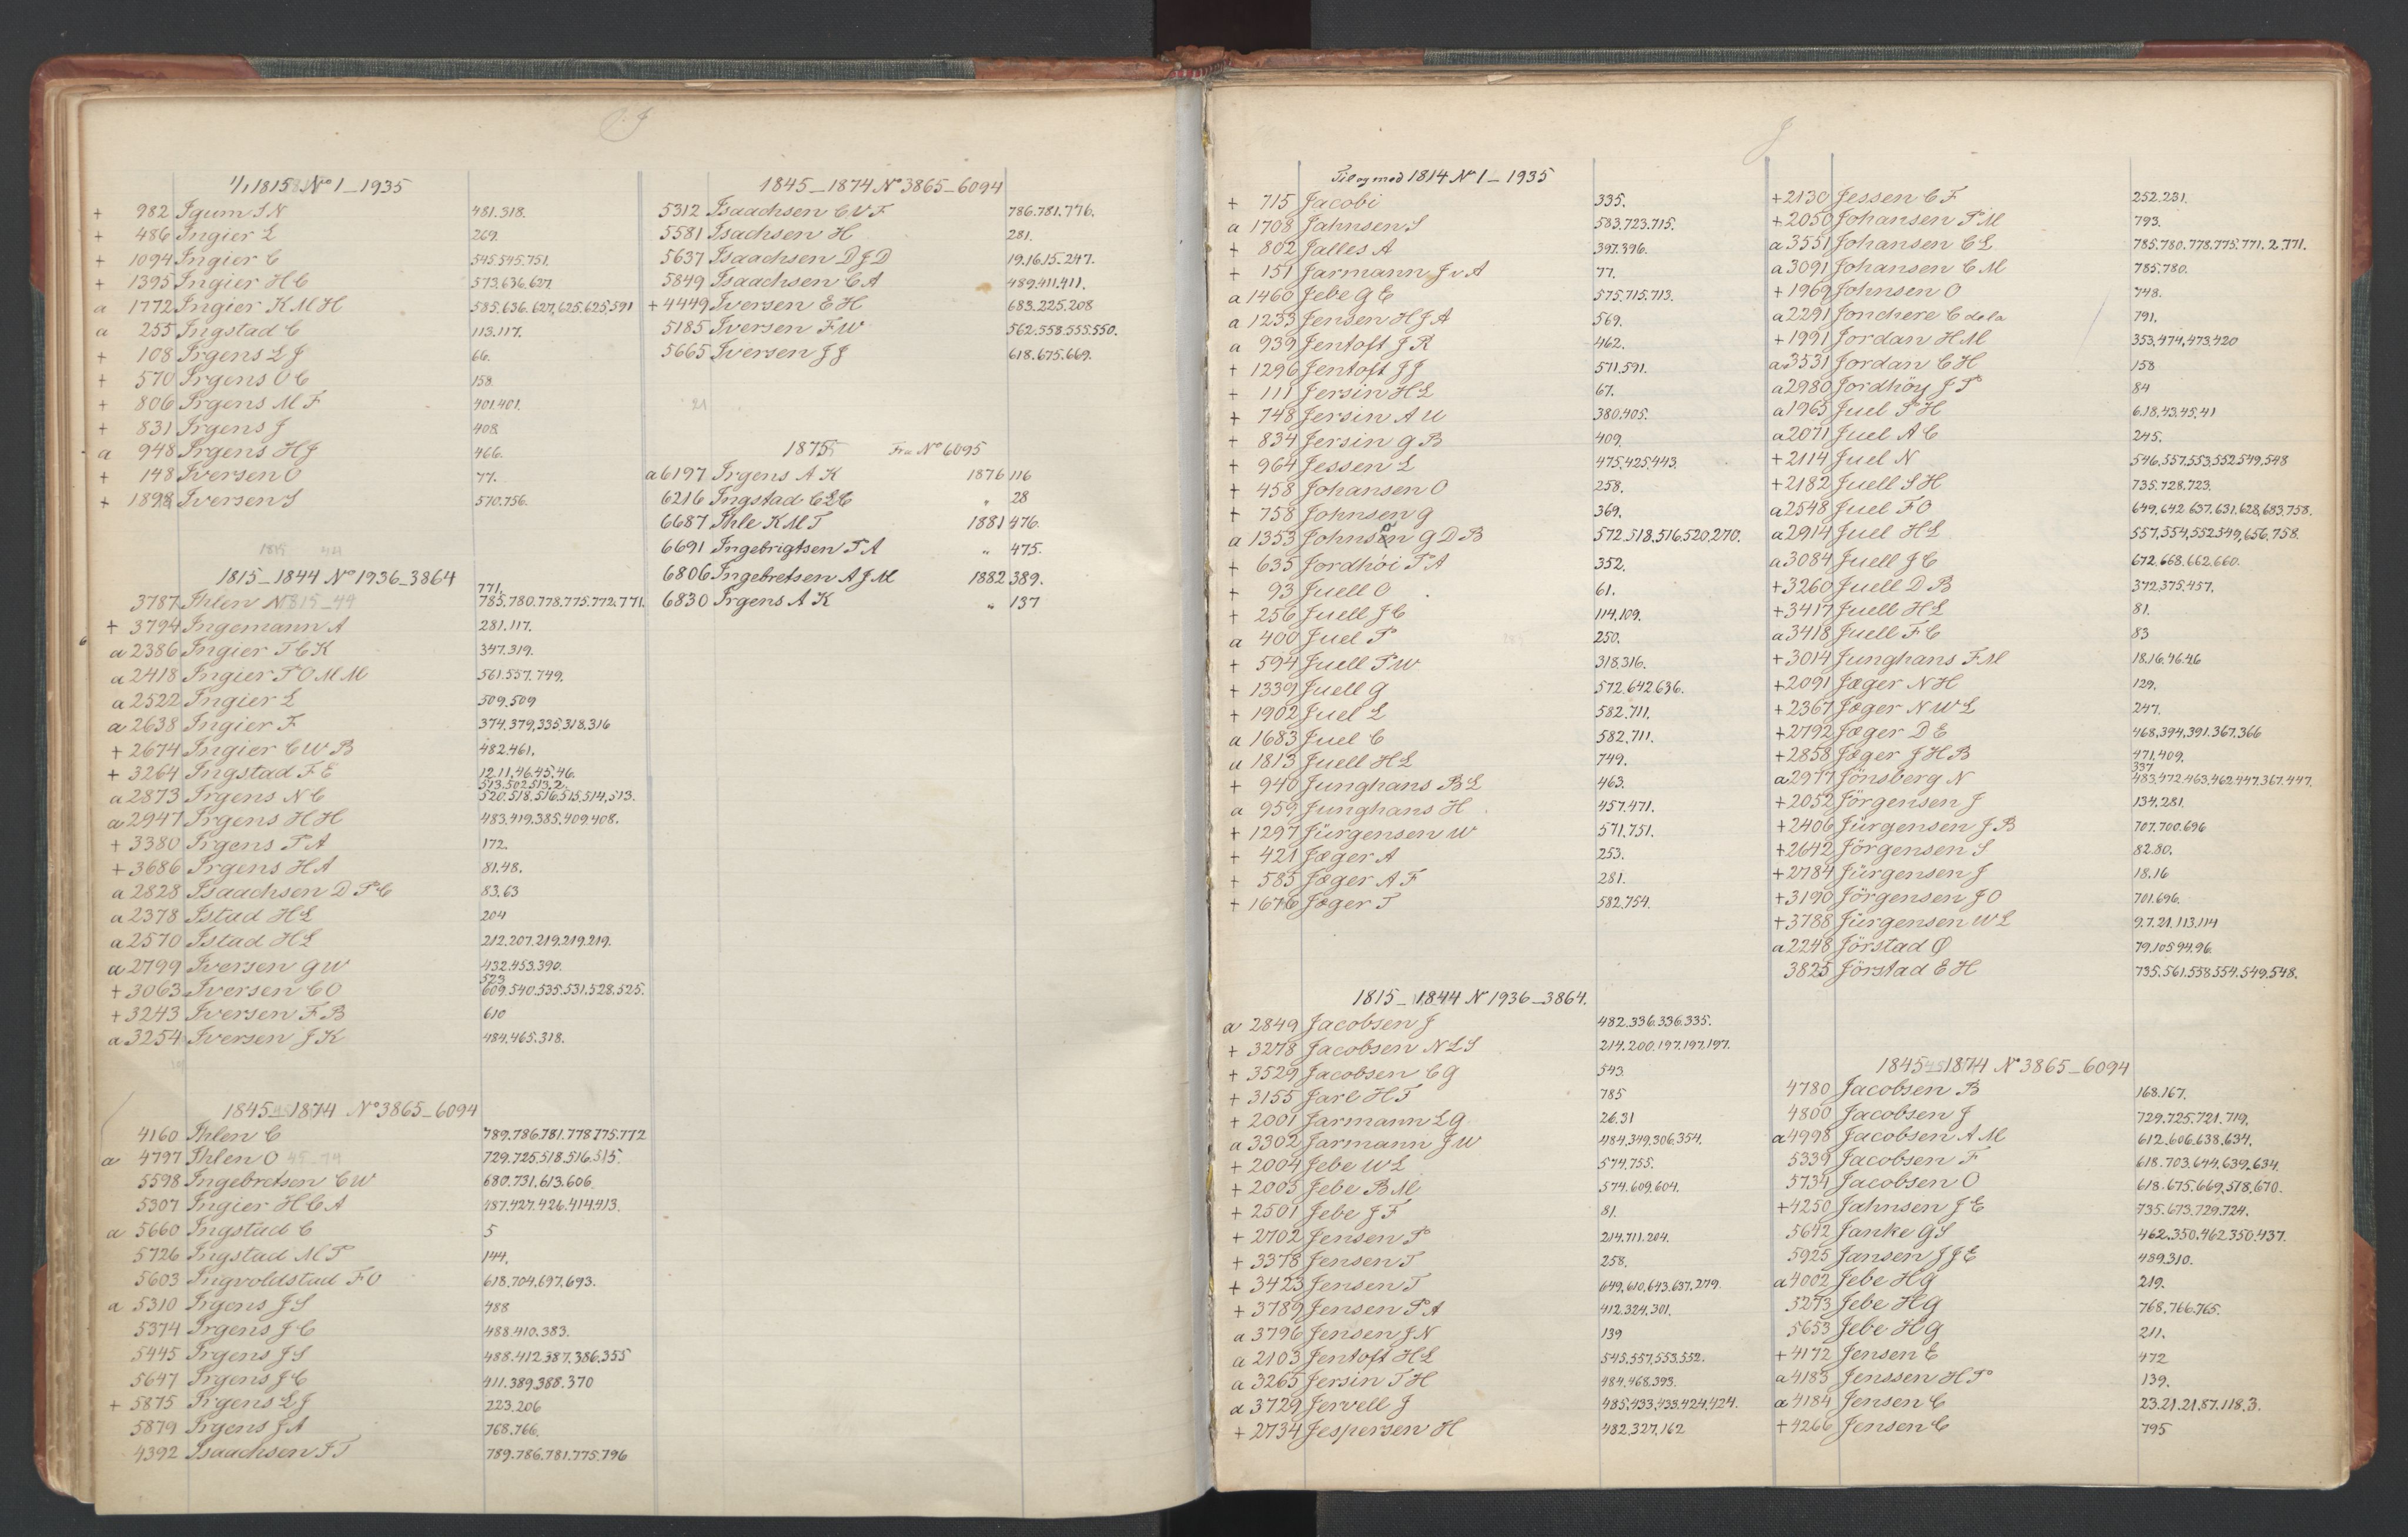 I. J
1/1 1815 No 1_1935
+ 982 Igum S N 481.318.
+ 486 Ingier L 269.
+ 1094 Ingier C 545.545.751.
+ 1395 Ingier H C 573.636.627.
a 1772 Ingier K M H 585.636.627.625.625.591
a 255 Ingstad C 113.117.
+ 108 Irgens L J 66.
+ 570 Irgens O C 158.
+ 806 Irgens M F 401.401.
+ 831 Irgens J 408.
a 948 Irgens H J 466.
+ 148 Iversen O 77.
+ 1898 Iversen S 570.756.
1815_1844 No 1936_3864
771.
3787 Ihlen N 1815_44 785.780.778.775.772.771.
+ 3794 Ingemann A 281.117.
a 2386 Ingier T C K 347.319.
a 2418 Ingier P O M M 561.557.749.
a 2522 Ingier L 509.509
a 2638 Ingier F 374.379.335.318.316
+ 2674 Ingier C W B 482.461.
+ 3264 Ingstad F E 12.11.46.45.46.
513.502.513.2.
a 2873 Irgens N C 520.518.516.515.514.513.
a 2947 Irgens H H 483.419.385.409.408.
+ 3380 Irgens P A 172.
+ 3686 Irgens H A 81.48.
a 2828 Isaachsen D P C 83.63
a 2378 Istad H L 204
a 2570 Istad H L 212.207.219.219.219.
a 2799 Iversen G W 432.453.390.
523
+ 3063 Iversen C O 609.540.535.531.528.525.
+ 3243 Iversen F B 610
a 3254 Iversen J K 484.465.318.
1845_1874 No 3865_6094
4160 Ihlen C 789.786.781.778.775.772
a 4797 Ihlen O 45_74 729.725.518.516.515.
5598 Ingebretsen C W 680.731.613.606
5307 Ingier H C A 487.427.426.414.413.
a 5660 Ingstad C 5
5726 Ingstad M P 144.
5603 Ingvoldstad F O 618.704.697.693.
a 5310 Irgens J S 488
5374 Irgens J C 488.410.383.
5445 Irgens J S 488.412.387.386.355
5647 Irgens J C 411.389.388.370
+ 5875 Irgens L J 223.206
5879 Irgens J A 768.766.
4392 Isaachsen I T 789.786.781.775.796
1845_1874 No 3865_6094
5312 Isaachsen C V F 786.781.776.
5581 Isachsen H 281.
5637 Isaachsen D J D 19.16.15.247.
5849 Isaachsen C A 489.411.411.
+ 4449 Iversen E H 683.225.208
5185 Iversen F W 562.558.555.550.
5665 Iversen J J 618.675.669.
1875 Fra No 6095
a 6197 Irgens A K 1876 116
6216 Ingstad C L C " 28
6687 Ihle K M T 1881 476.
6691 Ingebrigtsen P A " 475.
6806 Ingebretsen A J M 1882 389.
6830 Irgens A K " 137
J
Til og med 1814 No 1_1935
+ 715 Jacobi 335.
a 1708 Jahnsen S 583.723.715.
+ 802 Jalles A 397.396.
+ 151 Jarmann J v A 77.
a 1460 Jebe G E 575.715.713.
a 1253 Jensen H J A 569.
a 939 Jentoft J R 462.
+ 1296 Jentoft J J 571.591.
+ 111 Jersin H L 67.
+ 748 Jersin A U 380.405.
+ 834 Jersin G B 409.
+ 964 Jessen L 475.425.443.
+ 458 Johansen O 258.
+ 758 Johnsen G 369.
a 1353 Johnson G D B 572.518.516.520.270.
+ 635 Jordhöi P A 352.
+ 93 Juell O 61.
+ 256 Juell J C 114.109.
a 400 Juel P 250.
+ 594 Juell P W 318.316.
+ 1339 Juell G 572.642.636.
+ 1902 Juel L 582.711.
a 1683 Juel C 582.711.
a 1813 Juell H L 749.
+ 940 Junghans B L 463.
a 959 Junghans H 457.471.
+ 1297 Jürgensen W 571.751.
+ 421 Jæger A 253.
+ 585 Jæger A F 281.
+ 1676 Jæger T 582.754.
1815_1844 No 1936_3864.
a 2849 Jacobsen J 482.336.336.335.
+ 3278 Jacobsen N L S 214.200.197.197.197.
+ 3529 Jacobsen C G 543.
+ 3155 Jarl H T 785
+ 2001 Jarmann L G 26.31
a 3302 Jarmann J W 484.349.306.354.
+ 2004 Jebe W L 574.755.
+ 2005 Jebe B M 574.609.604.
+ 2501 Jebe J F 81.
+ 2702 Jensen P 214.711.204.
+ 3378 Jensen T 258.
+ 3423 Jensen T 649.610.643.637.279.
+ 3789 Jensen P A 412.324.301.
a 3796 Jensen J N 139
a 2103 Jentoft H L 545.557.553.552.
a 3265 Jersin T H 484.468.393.
a 3729 Jervell J 485.433.433.424.424.
+ 2734 Jespersen H 482.327.162
+ 2130 Jessen C F 252.231.
+ 2050 Johansen P M 793.
a 3551 Johansen C L 785.780.778.775.771.2.771.
a 3091 Johansen C M 785.780.
+ 1969 Johnsen O 748.
a 2291 Jonchere C de la 791.
+ 1991 Jordan H M 353.474.473.420
a 3531 Jordan C H 158
a 2980 Jordhöy J P 84
a 1965 Juel P H 6.18.43.45.41
a 2071 Juel A C 245.
+ 2114 Juel N 546.557.553.552.549.548
+ 2182 Juell S H 735.728.723.
a 2548 Juel F O 649.642.637.631.628.683.758.
a 2914 Juel H L 557.554.552.549.656.758.
a 3084 Juell J C 672.668.662.660.
+ 3260 Juell D B 372.375.457.
+ 3417 Juell H L 81.
a 3418 Juell F C 83
+ 3014 Junghans F M 18.16.46.46
+ 2091 Jæger N H 129.
+ 2367 Jæger N W L 247.
+ 2792 Jæger D E 468.394.391.367.366
+ 2858 Jæger J H B 471.409.
337
a 2977 Jönsberg N 483.472.463.462.447.367.447.
+ 2052 Jörgensen J 134.281.
+ 2406 Jürgensen J B 707.700.696
+ 2642 Jörgensen S 82.80.
+ 2784 Jürgensen J 18.16
+ 3190 Jörgensen J O 701.696.
+ 3788 Jürgensen W L 9.7.21.113.114
a 2248 Jörstad Ø 79.105.94.96.
3825 Jörstad E H 735.561.558.554.549.548.
1845_1874 No 3865_6094
4780 Jacobsen B 168.167.
4800 Jacobsen J 729.725.721.719.
a 4998 Jacobsen A M 612.606.638.634.
5339 Jacobsen F 618.703.644.639.634.
5734 Jacobsen O 618.675.669.518.670.
+ 4250 Jahnsen J E 735.673.729.724.
5642 Janke G S 462.350.462.350.437.
5925 Jansen J J E 489.310.
a 4002 Jebe H G 219.
5273 Jebe H G 768.766.765.
5653 Jebe H G 211.
+ 4172 Jensen E 472
a 4183 Jenssen H P 139.
a 4184 Jensen C 23.21.21.87.118.3.
+ 4266 Jensen C 795